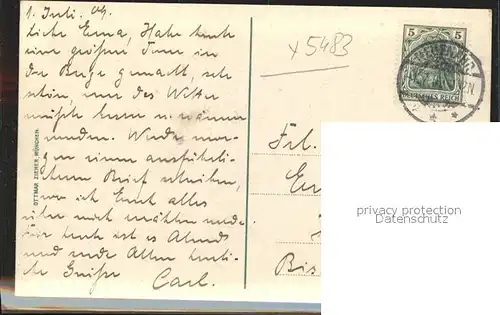 1. Juli. 04.
Liebe Erna, Habe heute
eine grössere Tour in
die Berge gemacht, sehr
schön, nur das Wetter
müsste besser u. wärmer
werden. Werde mor-
gen einen ausführli-
cheren Brief schreiben,
wo ich Euch alles
erzählen werde
Für heute ist es Abends
und sende Allen herzli-
che Grüsse Carl.
OTTMAR ZIEHER, MÜNCHEN.
x 5483
5 5
DEUTSCHES REICH
Frl.
Er
Bis
privacy protection
Datenschutz